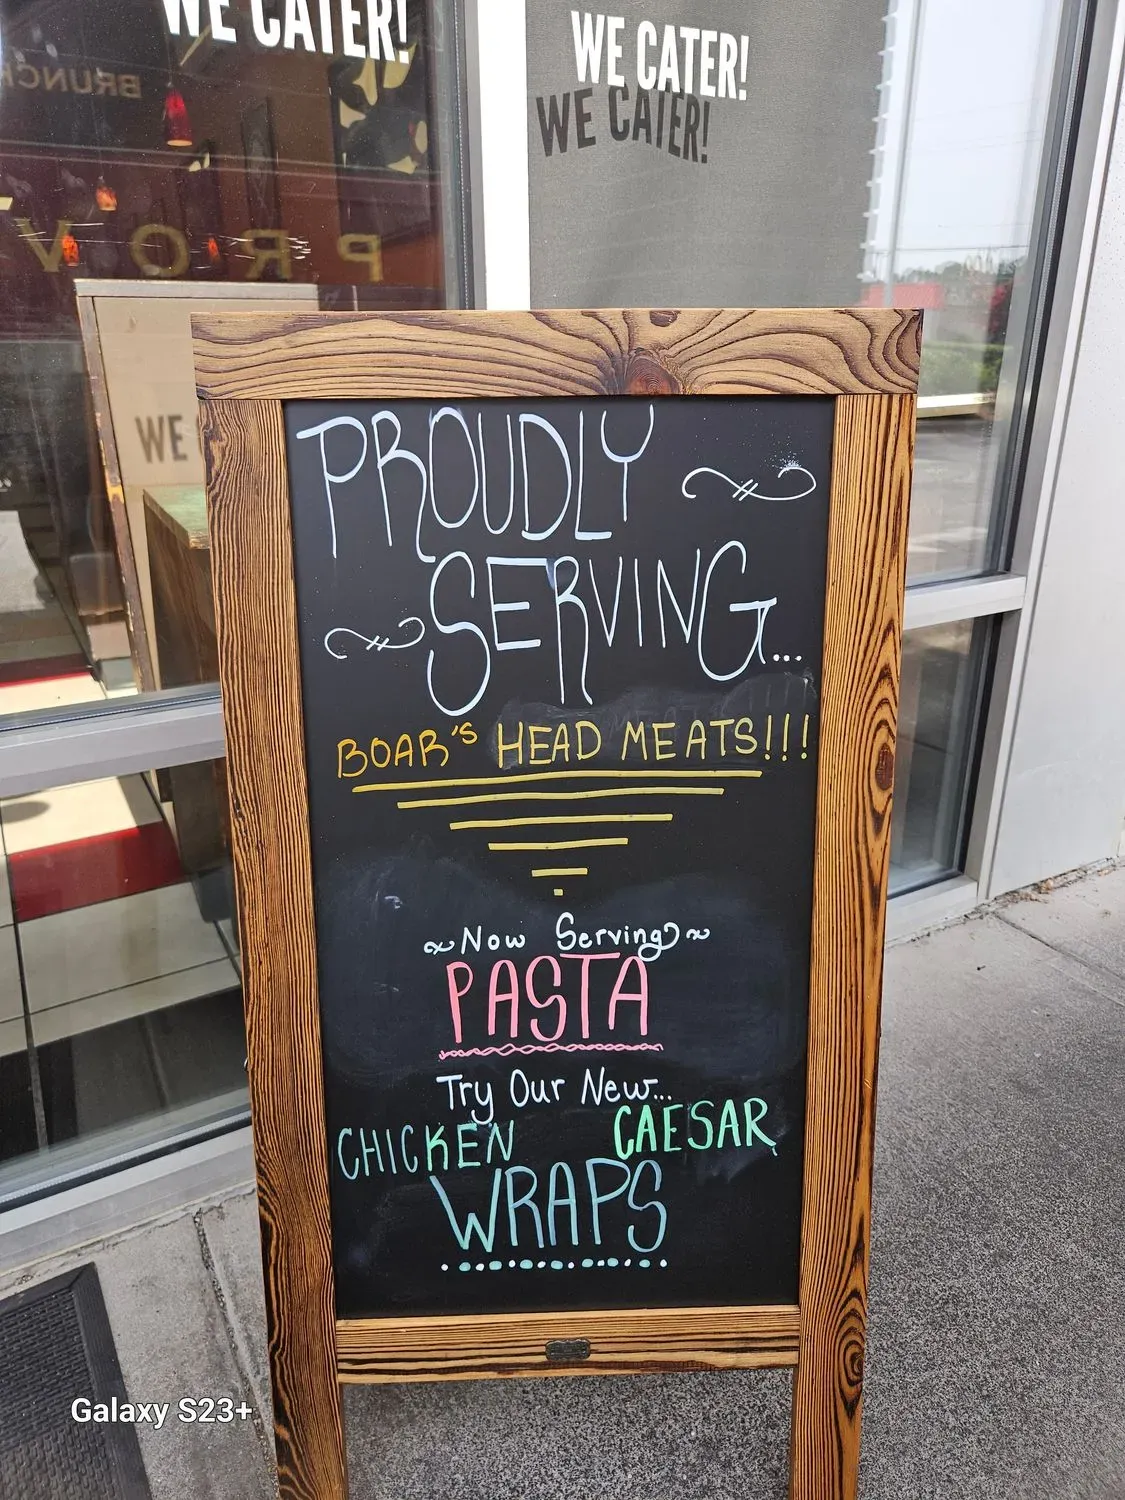 WE CATER!
WE CATER!
WE CATER!
BRUNCH
PROV
WE
PROUDLY
SERVING...
BOAR'S HEAD MEATS!!!
~Now Serving~
PASTA
Try Our New...
CHICKEN CAESAR
WRAPS
Galaxy S23+